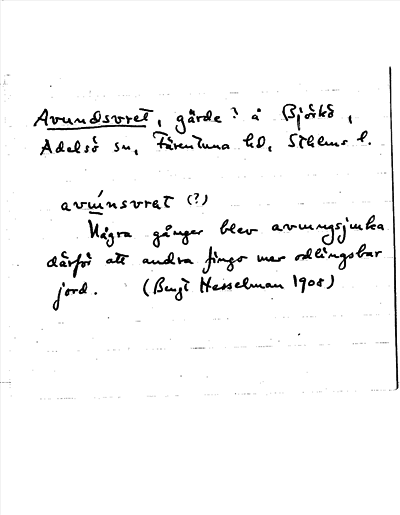 Avundsvret, gärde? å Björkö,
Adelsö sn, Färentuna hd, Sthlms l.
avúnsvrat (?)
Några gånger blev avungsjuka
därför att andra fingo mer odlingsbar
jord. (Bengt Hesselman 1908)